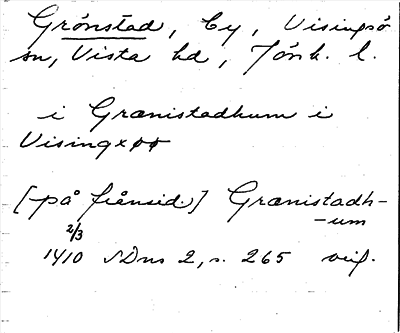 Grönstad, by, Visingsö
sn, Vista hd, Jönk. l.
i Grænistadhum i
Visingxøø
[på frånsid.] Grænistadh-
-um
2/3
1410 SDns 2, s. 265 orig.